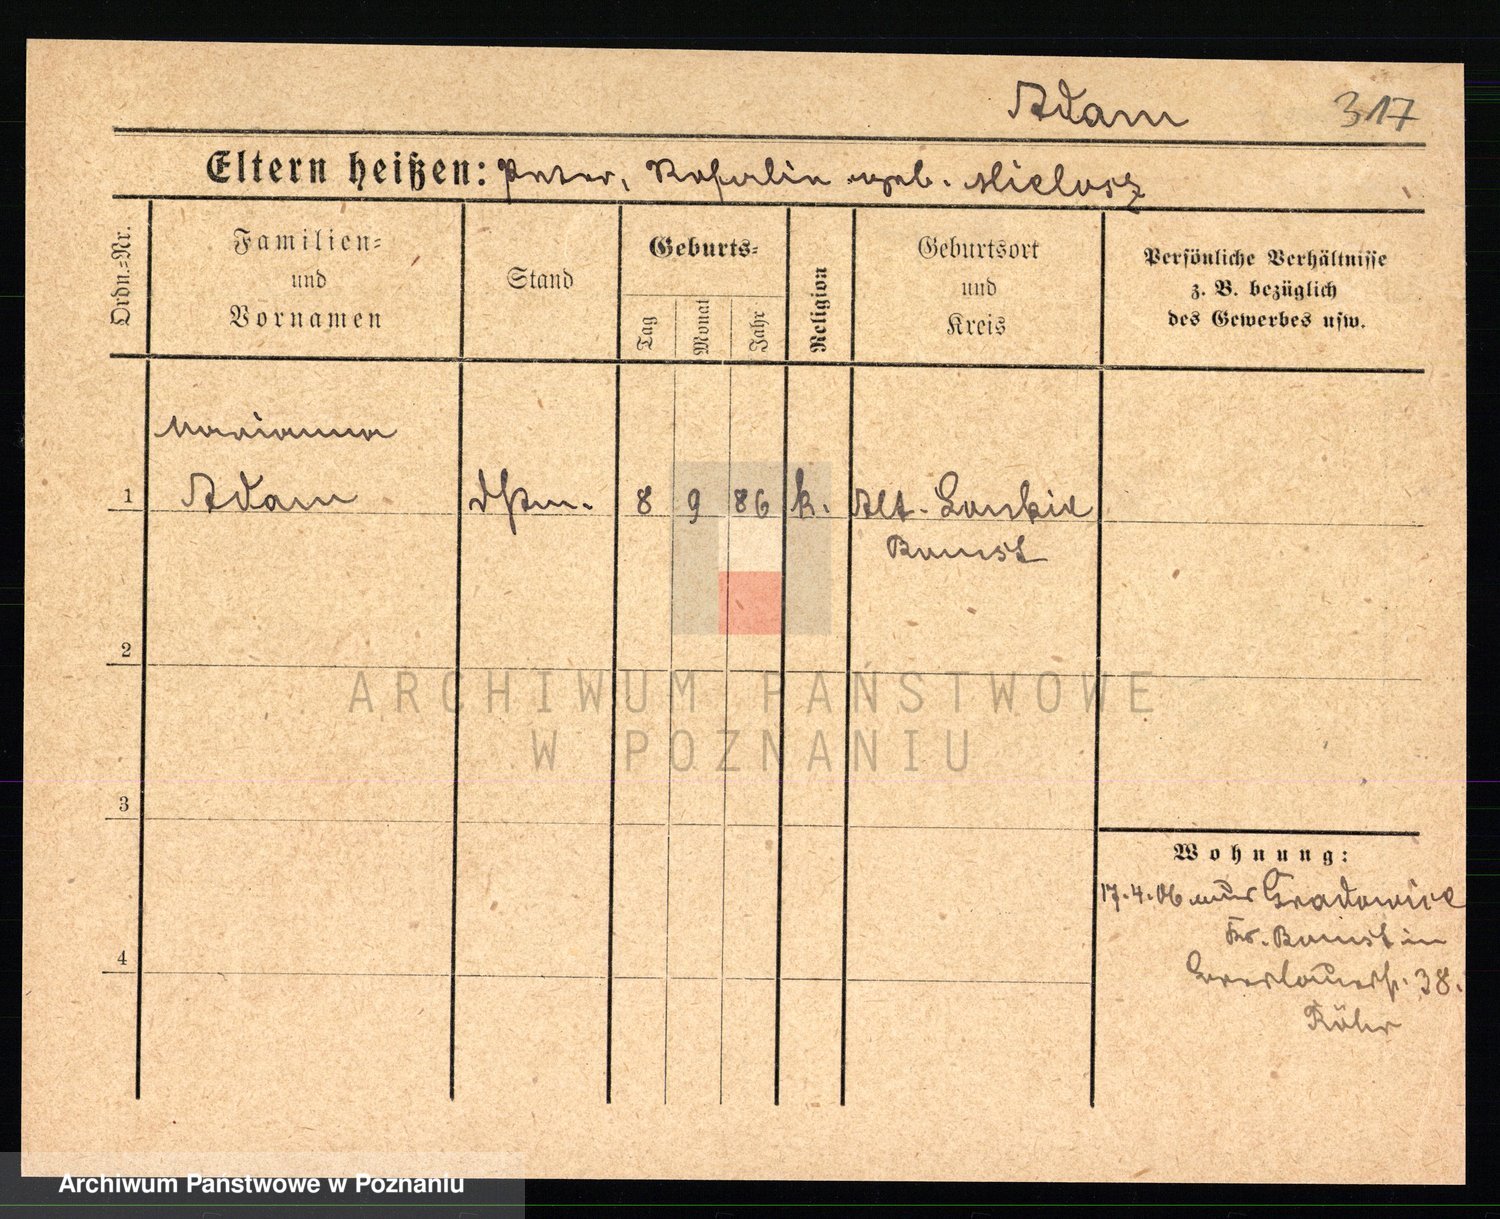 Adam 317
Eltern heißen: Peter, Rosalie geb. Mielosz
Ordn.-Nr.
Familien-
und
Vornamen
Stand
Geburts-
Tag
Monat
Jahr
Religion
Geburtsort
und
Kreis
Persönliche Verhältnisse
z. B. bezüglich
des Gewerbes usw.
Marianna
1 Adam 8 9 86 k. Alt-
Bomst
2
3
4
Wohnung:
17.4.06 aus Gradowice
Kr. Bomst in
Breslauerstr. 38.
Röhr
ARCHIWUM PAŃSTWOWE
W POZNANIU
Archiwum Państwowe w Poznaniu